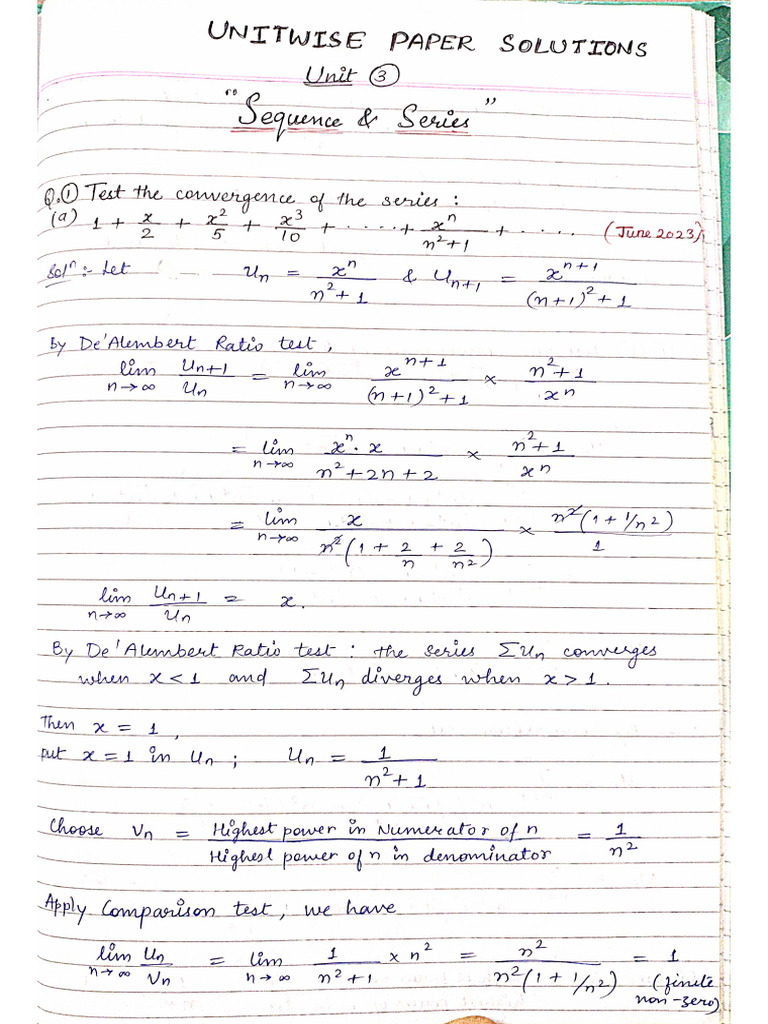 UNITWISE PAPER SOLUTIONS
Unit ③
"Sequence & Series"
Q.① Test the convergence of the series :
(a) 1 + x/2 + x²/5 + x³/10 + ..... + xⁿ/n²+1 + ..... (June 2023)
Solⁿ :- Let Uₙ = xⁿ/n²+1 & Uₙ₊₁ = xⁿ⁺¹/(n+1)²+1
by De'Alembert Ratio test,
lim n→∞ Uₙ₊₁/Uₙ = lim n→∞ xⁿ⁺¹/(n+1)²+1 × n²+1/xⁿ
= lim n→∞ xⁿ·x/n²+2n+2 × n²+1/xⁿ
= lim n→∞ x/n²(1 + 2/n + 2/n²) × n²(1+1/n²)/1
lim n→∞ Uₙ₊₁/Uₙ = x.
By De'Alembert Ratio test : the series ΣUₙ converges
when x < 1 and ΣUₙ diverges when x > 1.
Then x = 1,
put x = 1 in Uₙ ; Uₙ = 1/n²+1
Choose Vₙ = Highest power in Numerator of n/Highest power of n in denominator = 1/n²
Apply Comparison test, we have
lim n→∞ Uₙ/Vₙ = lim n→∞ 1/n²+1 × n² = n²/n²(1+1/n²) = 1 (finite
non-zero)